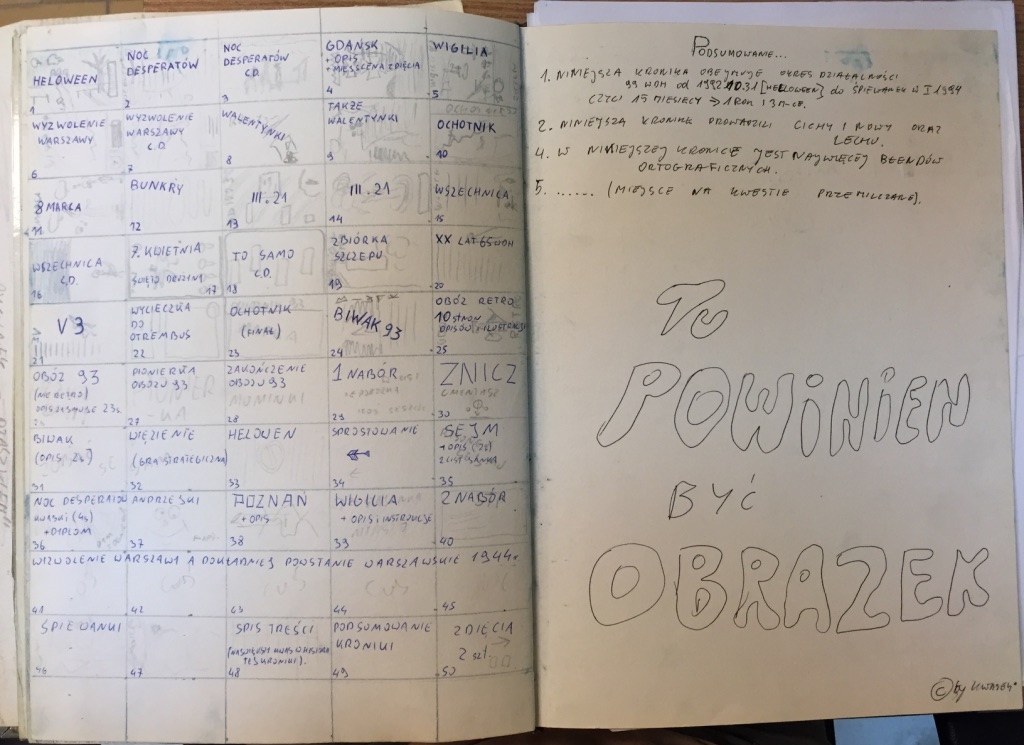 HELOWEEN
1
NOC
DESPERATÓW
2
NOC
DESPERATÓW
C.D.
3
GDAŃSK
+ OPIS
+ MIEJSCE NA ZDJĘCIA
4
WIGILIA
5
WYZWOLENIE
WARSZAWY
6
WYZWOLENIE
WARSZAWY
C.D.
7
WALENTYNKI
8
TAKŻE
WALENTYNKI
9
OCHOTNIK
10
8 MARCA
11
BUNKRY
12
III.21
13
III.21
14
WSZECHNICA
15
WSZECHNICA
C.D.
16
7. KWIETNIA
ŚWIĘTO DRUŻYNY
17
TO SAMO
C.D.
18
ZBIÓRKA
SZCZEPU
19
XX LAT 65 WDH
20
V3
21
WYCIECZKA
DO
OTREMBUS
22
OCHOTNIK
(FINAŁ)
23
BIWAK 93
24
OBÓZ RETRO
10 STRON
OPISÓW I ILUSTRACJI
25
OBÓZ 93
(NIE RETRO)
PIONIERKA
OBOZU 93
27
ZAKOŃCZENIE
OBOZU 93
28
1 NABÓR
29
ZNICZ
CMENTARZ
30
BIWAK
(OPIS 2s)
31
WIĘZIENIE
(GRA STRATEGICZNA)
32
HELOWEN
33
SPROSTOWANIE
34
SEJM
+ OPIS (2s)
35
NOC DESPERATÓW
KWASKI (4s)
+ DIPLOM
36
ANDRZEJKI
37
POZNAŃ
+ OPIS
38
WIGILIA
+ OPIS I INSTRUKCJE
39
2 NABÓR
40
WIZWOLENIE WARSZAWI A DOKŁADNIEJ POWSTANIE WARSZAWSKIE 1944r.
41
42
43
44
45
ŚPIEWANKI
46
47
SPIS TREŚCI
(NAJWIĘKSZY KWAS W HISTORII
TEJ KRONIKI).
48
PODSUMOWANIE
KRONIKI
49
ZDJĘCIA
2 szt.
50
PODSUMOWANIE...
1. NINIEJSZA KRONIKA OBEJMUJE OKRES DZIAŁALNOŚCI
99 WDH OD 1992.10.31 [HELLOWEEN] do ŚPIEWANEK W I 1994
CZYLI 15 MIESIĘCY → 1 ROK I 3 M-CE.
2. NINIEJSZĄ KRONIKE PROWADZILI CICHY I NOWY ORAZ
LECHU.
4. W NINIEJSZEJ KRONICE JEST NAJWIĘCEJ BŁENDÓW
ORTOGRAFICZNYCH.
5. ...... (MIEJSCE NA KWESTIE PRZEMILCZANE).
TU
POWINIEN
BYĆ
OBRAZEK
© by KWASEK